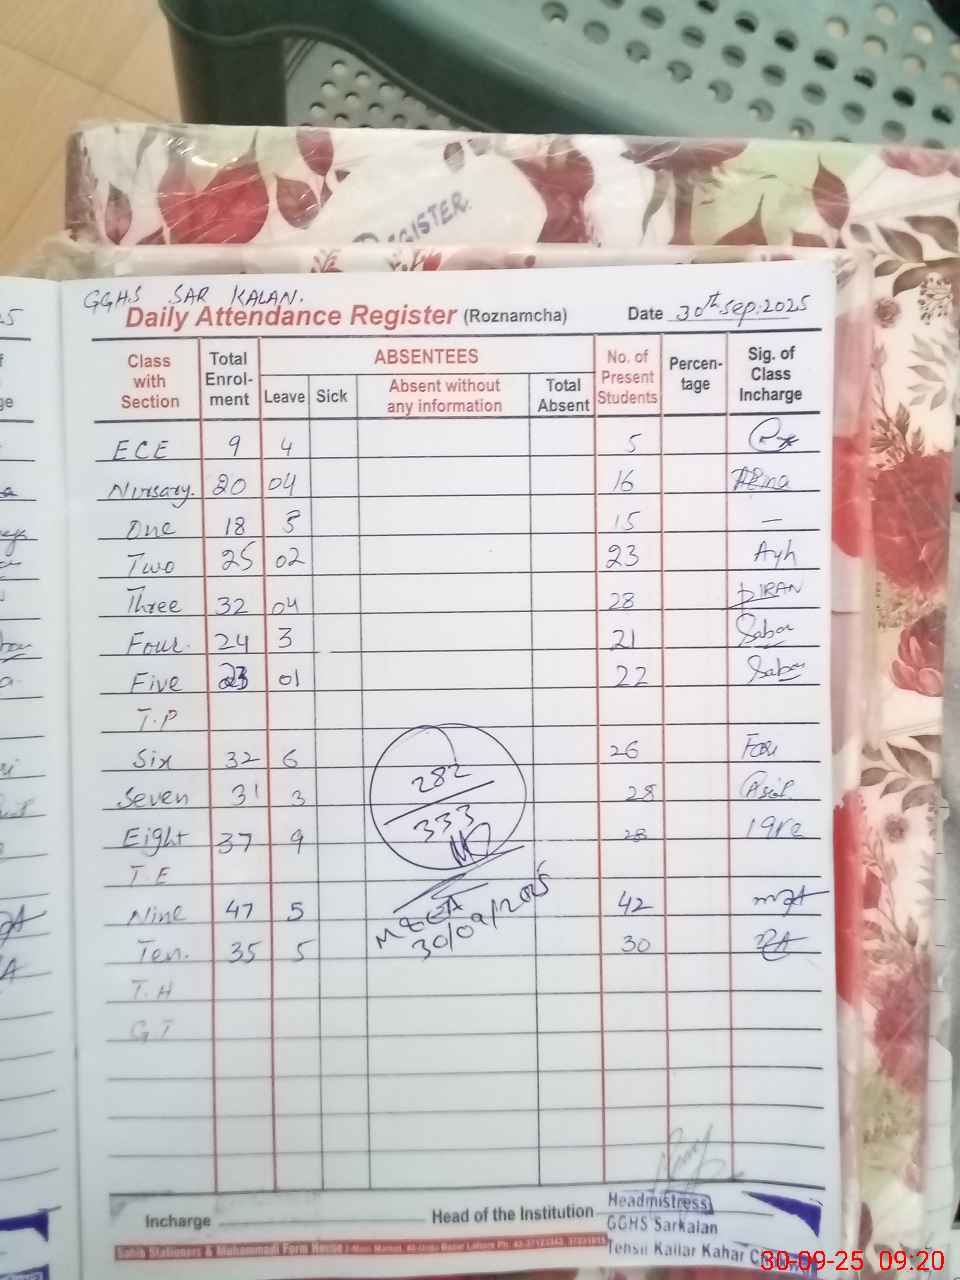 REGISTER.
GGHS SAR KALAN.
Daily Attendance Register (Roznamcha) Date 30th Sep:2025
Class with Section Total Enrol-ment ABSENTEES No. of Present Students Percen-tage Sig. of Class Incharge
Leave Sick Absent without any information Total Absent
ECE 9 4 5
Nursary. 20 04 16
One 18 3 15 —
Two 25 02 23 Ayh
Three 32 04 28
Four. 24 3 21 Saba
Five 23 01 22 Saba
T.P
Six 32 6 26
Seven 31 3 28
Eight 37 9 28
T.E
Nine 47 5 42
Ten. 35 5 30
T.H
G.T
282
333
30/09/2025
Incharge Head of the Institution
Headmistress
GGHS Sarkalan
Tehsil Kallar Kahar
Sahib Stationers & Muhammadi Form House
30-09-25 09:20